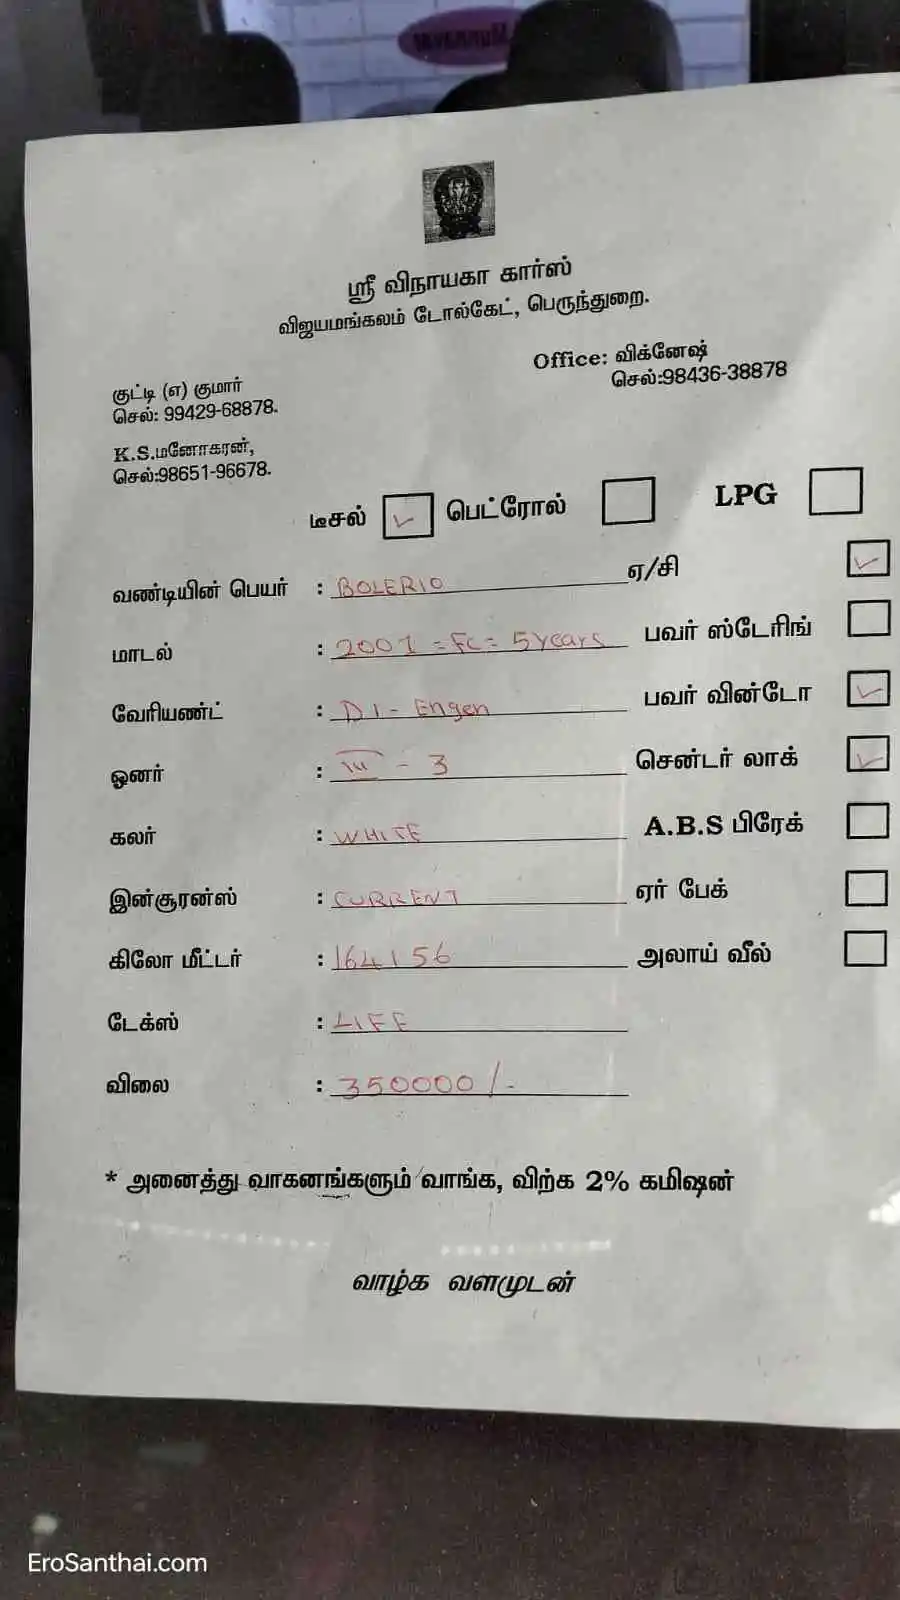 ஸ்ரீ விநாயகா கார்ஸ்
விஜயமங்கலம் டோல்கேட், பெருந்துறை.
Office: விக்னேஷ்
செல்:98436-38878
குட்டி (எ) குமார்
செல்: 99429-68878.
K.S.மனோகரன்,
செல்:98651-96678.
டீசல் ✓ பெட்ரோல் LPG
வண்டியின் பெயர் : BOLERIO ஏ/சி ✓
மாடல் : 2001 = FC = 5 years பவர் ஸ்டேரிங்
வேரியண்ட் : DI - Engen பவர் விண்டோ ✓
ஓனர் : III - 3 சென்டர் லாக் ✓
கலர் : WHITE A.B.S பிரேக்
இன்சூரன்ஸ் : CURRENT ஏர் பேக்
கிலோ மீட்டர் : 164156 அலாய் வீல்
டேக்ஸ் : LIFE
விலை : 350000/-
* அனைத்து வாகனங்களும் வாங்க, விற்க 2% கமிஷன்
வாழ்க வளமுடன்
EroSanthai.com